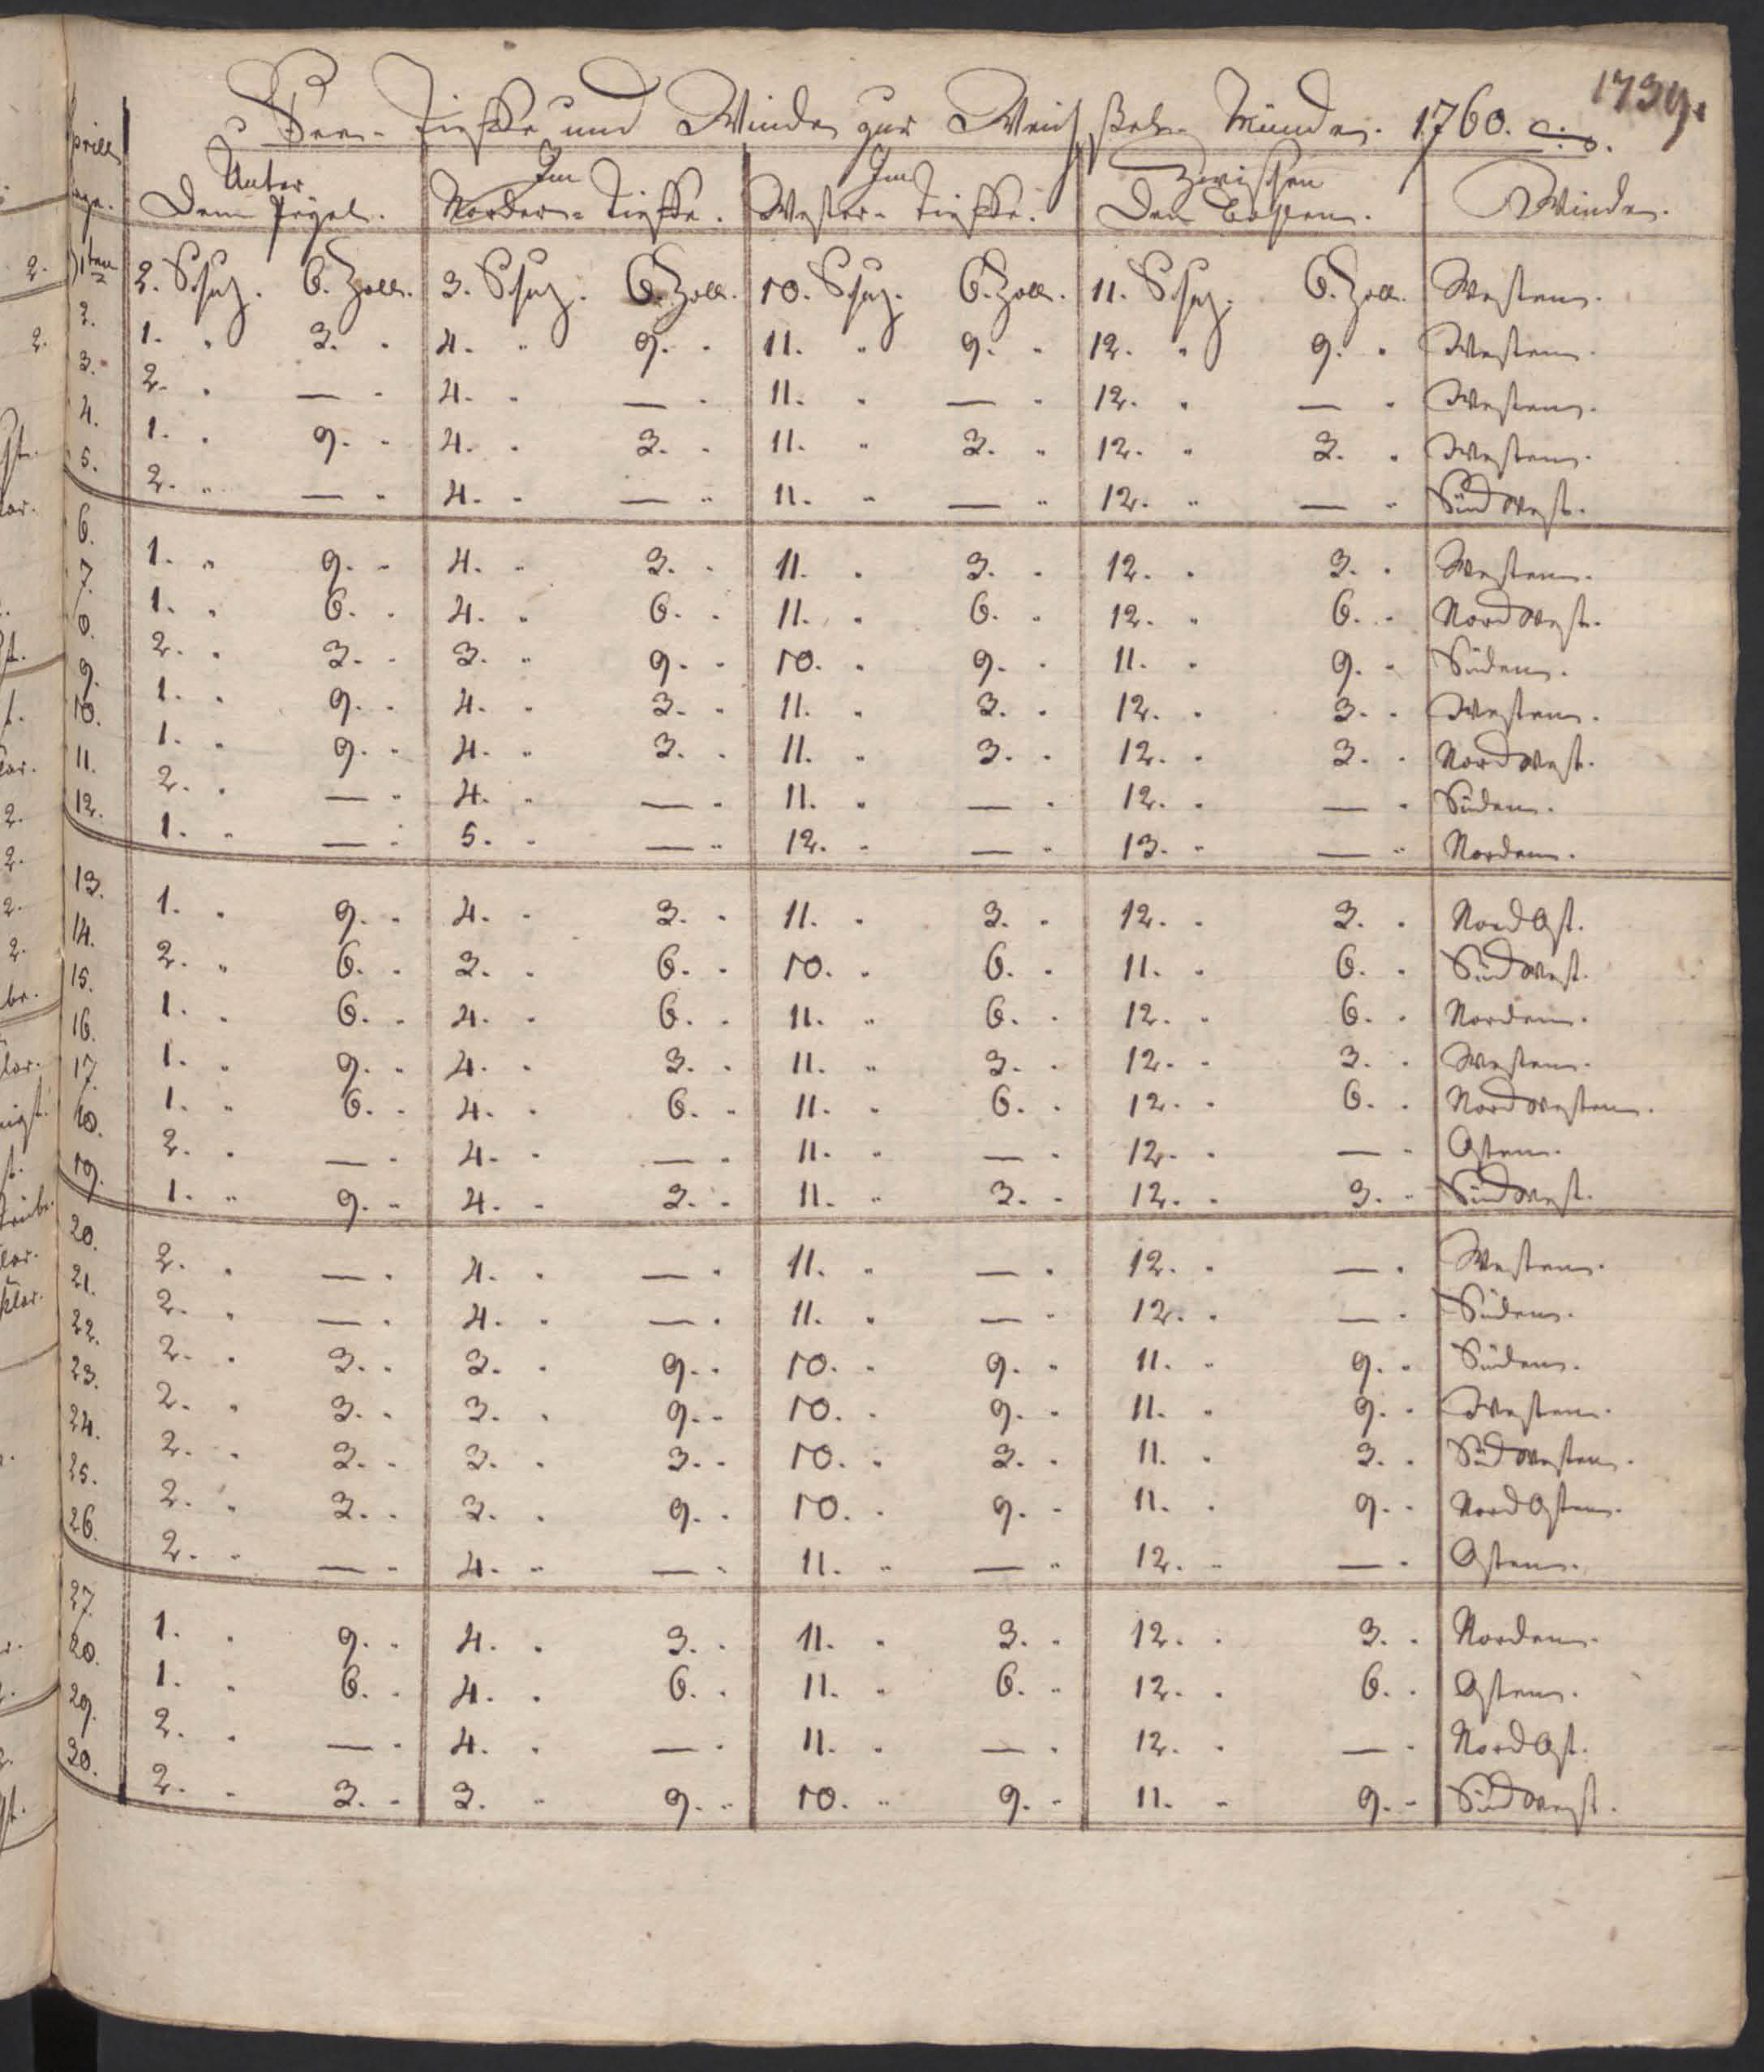 1739.
See- Tieffe und Winde zur Weichsel Münde. 1760. a: o.
Aprill Tage. Unter Dem Pegel. Im Norder- Tieffe. Im Wester- Tieffe. Zwischen Den Winde.
1ten 2. Schuh. 6. Zoll. 3. Schuh. 6. Zoll. 10. Schuh. 6. Zoll. 11. Schuh. 6. Zoll. Westen.
2. 1. " 3. " 4. " 9. " 11. " 9. " 12. " 9. " Westen.
3. 2. " — " 4. " — " 11. " — " 12. " — " Westen.
4. 1. " 9. " 4. " 3. " 11. " 3. " 12. " 3. " Westen.
5. 2. " — " 4. " — " 11. " — " 12. " — " Süd West.
6. 1. " 9. " 4. " 3. " 11. " 3. " 12. " 3. " Westen.
7. 1. " 6. " 4. " 6. " 11. " 6. " 12. " 6. " Nord West.
8. 2. " 3. " 3. " 9. " 10. " 9. " 11. " 9. " Süden.
9. 1. " 9. " 4. " 3. " 11. " 3. " 12. " 3. " Westen.
10. 1. " 9. " 4. " 3. " 11. " 3. " 12. " 3. " Nord West.
11. 2. " — " 4. " — " 11. " — " 12. " — " Süden.
12. 1. " — " 5. " — " 12. " — " 13. " — " Norden.
13. 1. " 9. " 4. " 3. " 11. " 3. " 12. " 3. " Nord Ost.
14. 2. " 6. " 3. " 6. " 10. " 6. " 11. " 6. " Süd West.
15. 1. " 6. " 4. " 6. " 11. " 6. " 12. " 6. " Norden.
16. 1. " 9. " 4. " 3. " 11. " 3. " 12. " 3. " Westen.
17. 1. " 6. " 4. " 6. " 11. " 6. " 12. " 6. " Nord Westen.
18. 2. " — " 4. " — " 11. " — " 12. " — " Osten.
19. 1. " 9. " 4. " 3. " 11. " 3. " 12. " 3. " Süd West.
20. 2. " — " 4. " — " 11. " — " 12. " — " Westen.
21. 2. " — " 4. " — " 11. " — " 12. " — " Süden.
22. 2. " 3. " 3. " 9. " 10. " 9. " 11. " 9. " Süden.
23. 2. " 3. " 3. " 9. " 10. " 9. " 11. " 9. " Westen.
24. 2. " 3. " 3. " 3. " 10. " 3. " 11. " 3. " Süd Westen.
25. 2. " 3. " 3. " 9. " 10. " 9. " 11. " 9. " Nord Osten.
26. 2. " — " 4. " — " 11. " — " 12. " — " Osten.
27. 1. " 9. " 4. " 3. " 11. " 3. " 12. " 3. " Norden.
28. 1. " 6. " 4. " 6. " 11. " 6. " 12. " 6. " Osten.
29. 2. " — " 4. " — " 11. " — " 12. " — " Nord Ost.
30. 2. " 3. " 3. " 9. " 10. " 9. " 11. " 9. " Süd West.